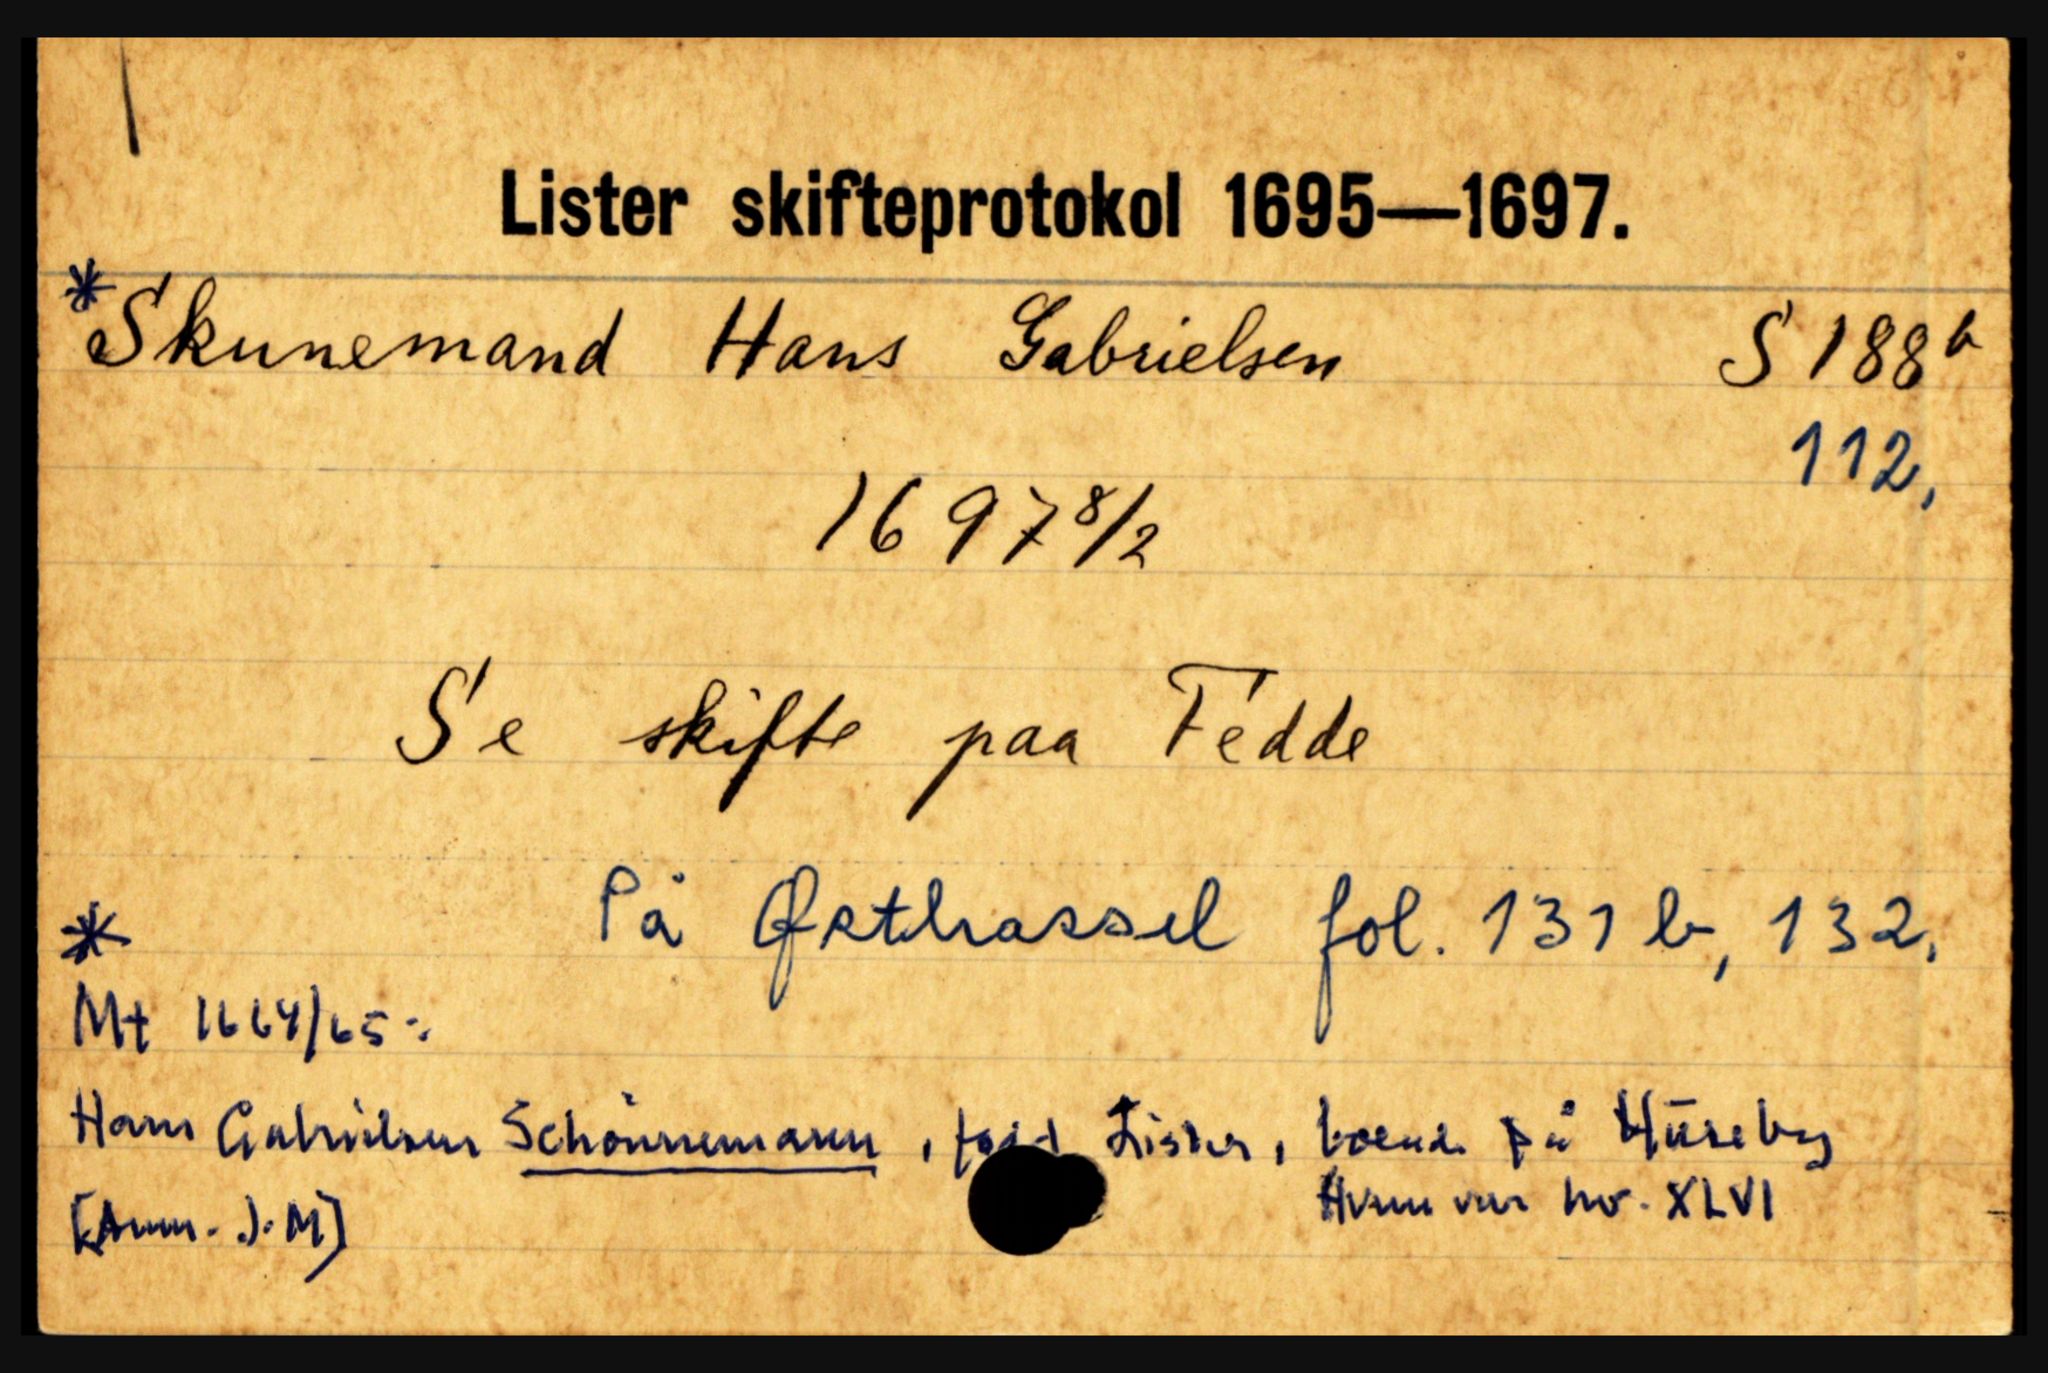 Lister skifteprotokol 1695—1697.
*Skunemand Hans Gabrielsen S 188 b
112,
1697 8/2
Se skifte paa Fedde
På Østhassel fol. 131 b, 132,
*
Mt 1664/65:
Hans Gabrielsen Schönnemann, fogd Lister, boende på Hüseby
[Anm. J. M] Hvum var nr. XLVI